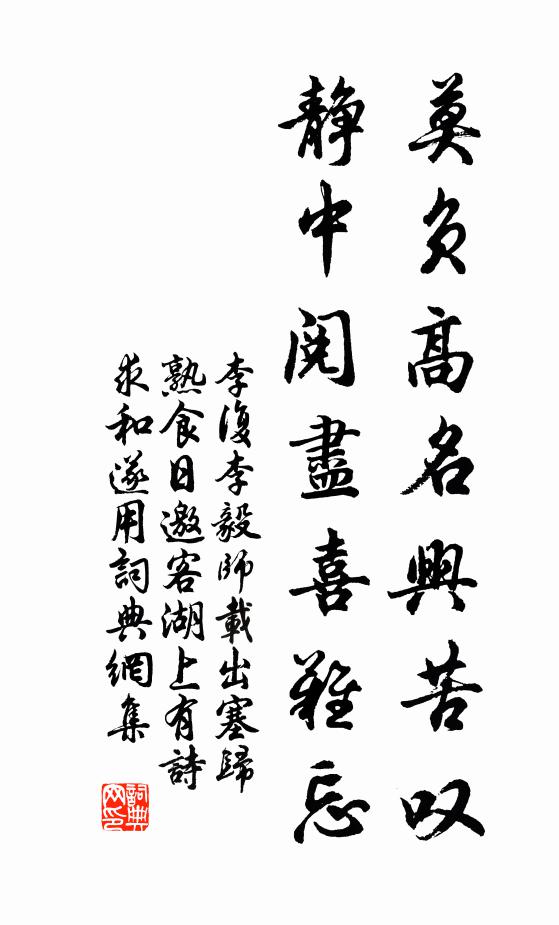 莫負高名興苦叹
静中閱盡喜難忘
李復李毅師載出塞歸
熟食日邀客湖上有詩
求和遂用詞典網集
詞典网印